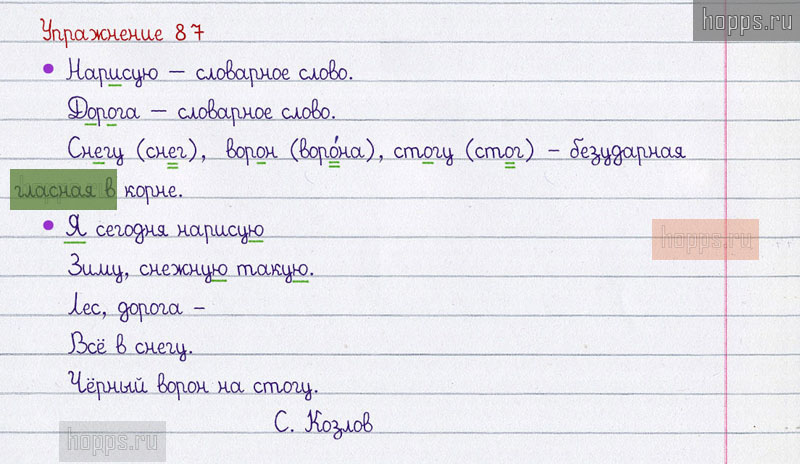 hopps.ru
Упражнение 87
• Нарисую – словарное слово.
Дорога – словарное слово.
Снегу (снег), ворон (воро́на), стогу (стог) – безударная
гласная в корне.
• Я сегодня нарисую
hopps.ru
Зиму, снежную такую.
Лес, дорога –
Всё в снегу.
Чёрный ворон на стогу.
С. Козлов
hopps.ru